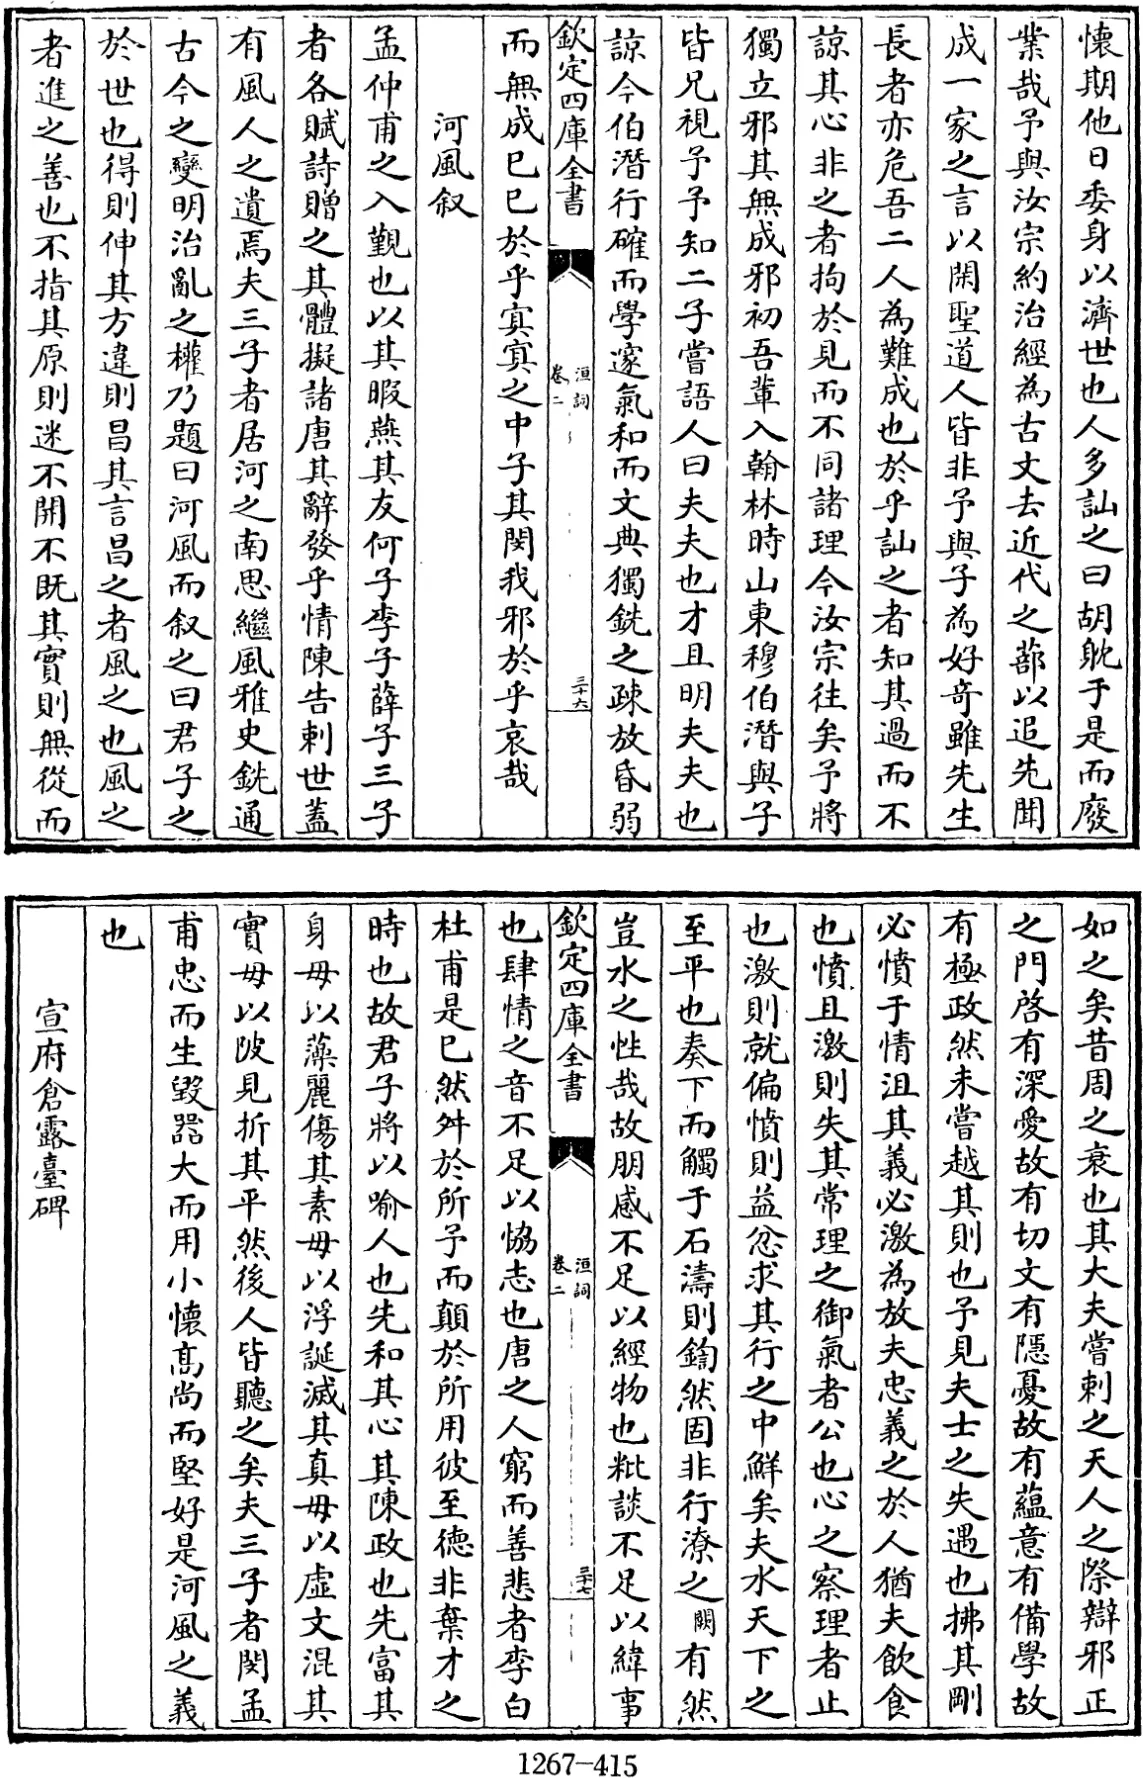 懐期他日委身以濟世也人多訕之曰胡躭于是而廢
業哉予與汝宗約治經為古文去近代之蔀以追先聞
成一家之言以閑聖道人皆非予與子為好竒雖先生
長者亦危吾二人為難成也於乎訕之者知其過而不
諒其心非之者拘於見而不同諸理今汝宗往矣予將
獨立邪其無成邪初吾輩入翰林時山東穆伯潛與子
皆兄視予予知二子嘗語人曰夫夫也才且明夫夫也
諒今伯潛行確而學邃氣和而文典獨銑之疎放昏弱
欽定四庫全書
洹詞
卷二
三十六
而無成已已於乎寘寘之中子其閔我邪於乎哀哉
河風叙
孟仲甫之入覲也以其暇燕其友何子李子薛子三子
者各賦詩贈之其體擬諸唐其辭發乎情陳告刺世蓋
有風人之遺焉夫三子者居河之南思繼風雅史銑通
古今之變明治亂之權乃題曰河風而叙之曰君子之
於世也得則伸其方違則昌其言昌之者風之也風之
者進之善也不指其原則迷不開不既其實則無從而
如之矣昔周之衰也其大夫嘗刺之天人之際辯邪正
之門啓有深愛故有切文有隱憂故有蘊意有備學故
有極政然未嘗越其則也予見夫士之失遇也拂其剛
必憤于情沮其義必激為放夫忠義之於人猶夫飲食
也憤且激則失其常理之御氣者公也心之察理者止
也激則就偏憤則益忿求其行之中鮮矣夫水天下之
至平也奏下而觸于石濤則鍧然固非行潦之闕有然
豈水之性哉故朋感不足以經物也粃談不足以緯事
欽定四庫全書
洹詞
卷二
三十七
也肆情之音不足以恊志也唐之人窮而善悲者李白
杜甫是已然舛於所予而顛於所用彼至德非葉才之
時也故君子將以喻人也先和其心其陳政也先富其
身毋以藻麗傷其素毋以浮誕滅其真毋以虛文混其
實毋以陂見折其平然後人皆聽之矣夫三子者閔孟
甫忠而生毀器大而用小懐髙尚而堅好是河風之義
也
宣府倉露臺碑
1267-415